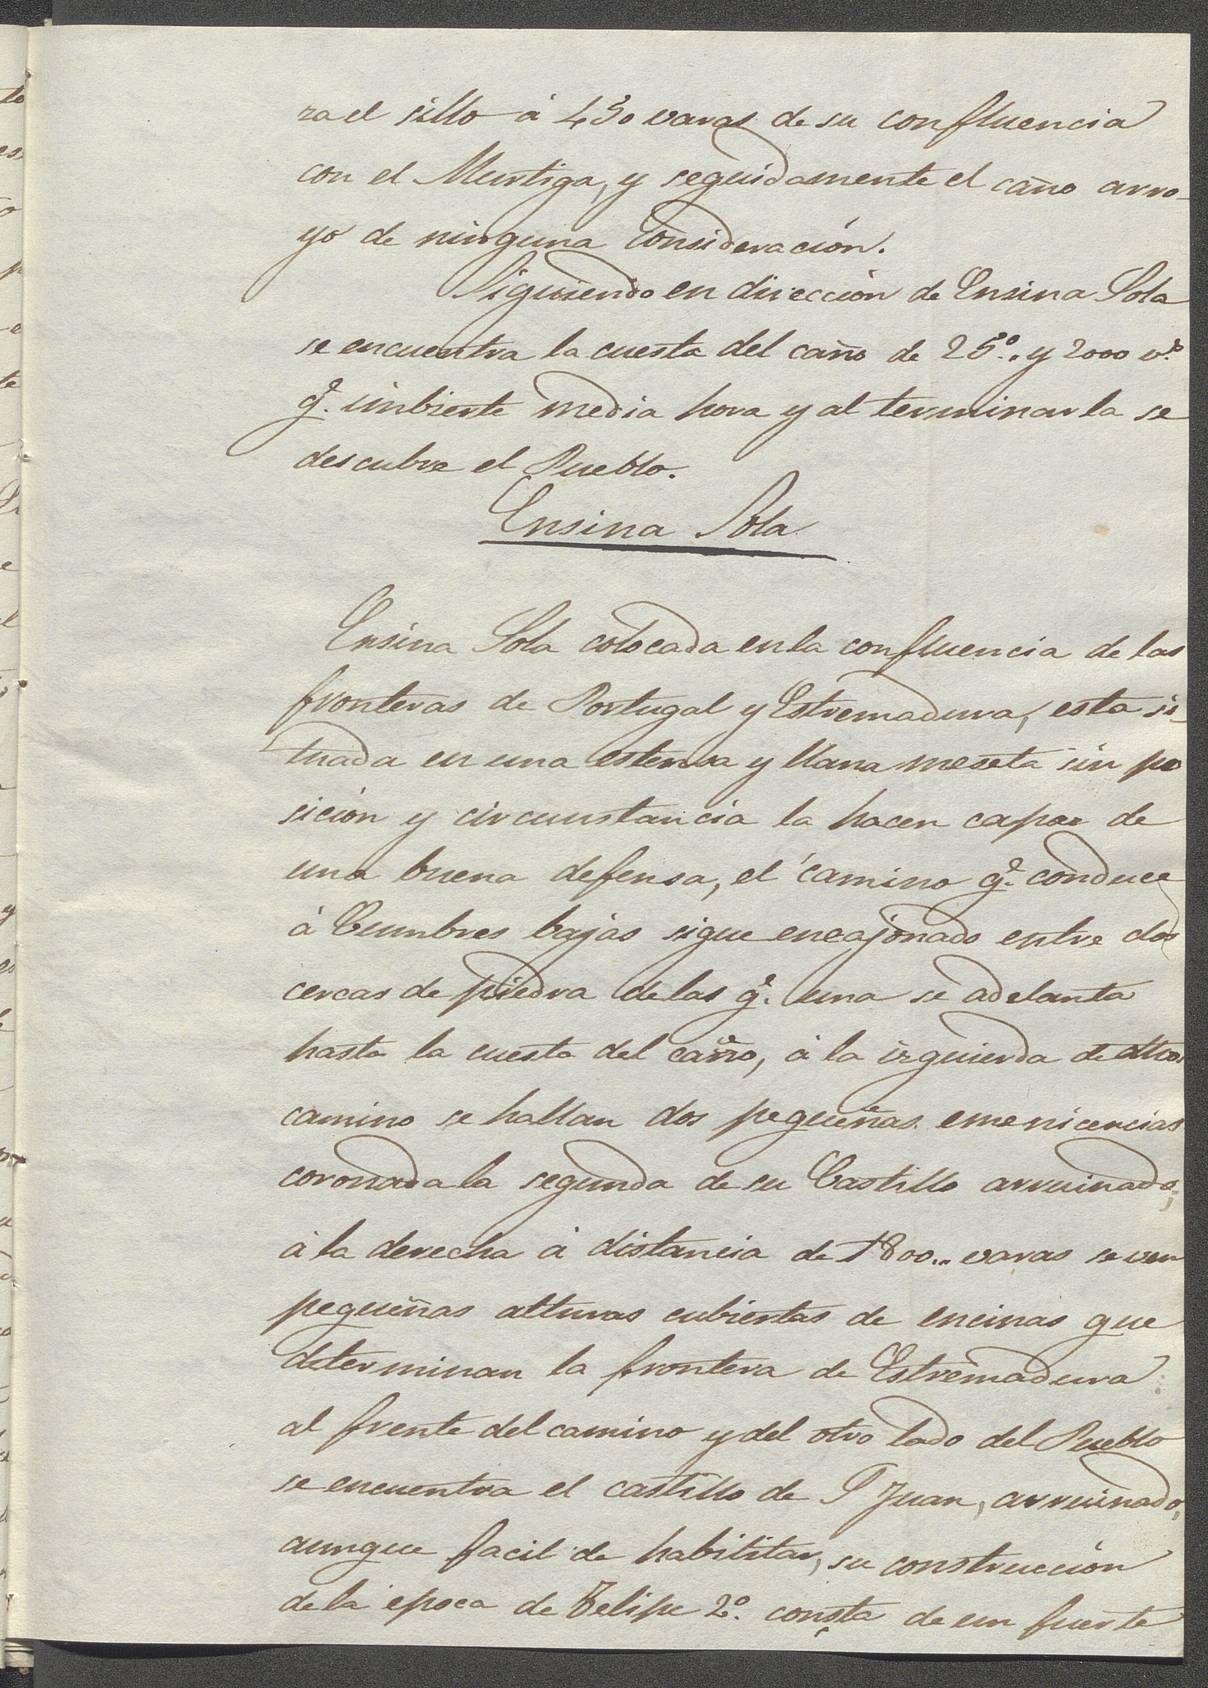 ra el sillo á 430 varas de su confluencia
con el Murtiga, y seguidamente el caño arro-
yo de ninguna consideración.
Siguiendo en dirección de Ensina Sola
se encuentra la cuesta del caño de 25º. y 2000 v.s
q.e imbierte media hora y al terminarla se
descubre el Pueblo.
Ensina Sola
Ensina Sola colocada en la confluencia de las
fronteras de Portugal y Estremadura, esta si-
tuada en una estensa y llana meseta sin po
sición y circunstancia la hacen capaz de
una buena defensa, el camino q.e conduce
á Cumbres bajas sigue encajonado entre dos
cercas de piedra de las q.e una se adelanta
hasta la cuesta del caño, á la izquierda de dho
camino se hallan dos pequeñas emenicencias
coronada la segunda de su Castillo arruinado;
á la derecha á distancia de 1800.. varas se ven
pequeñas alturas cubiertas de encinas que
determinan la frontera de Estremadura
al frente del camino y del otro lado del Pueblo
se encuentra el castillo de S Juan, arruinado,
aunque facil de habilitar, su construcción
de la epoca de Felipe 2º. consta de un fuerte